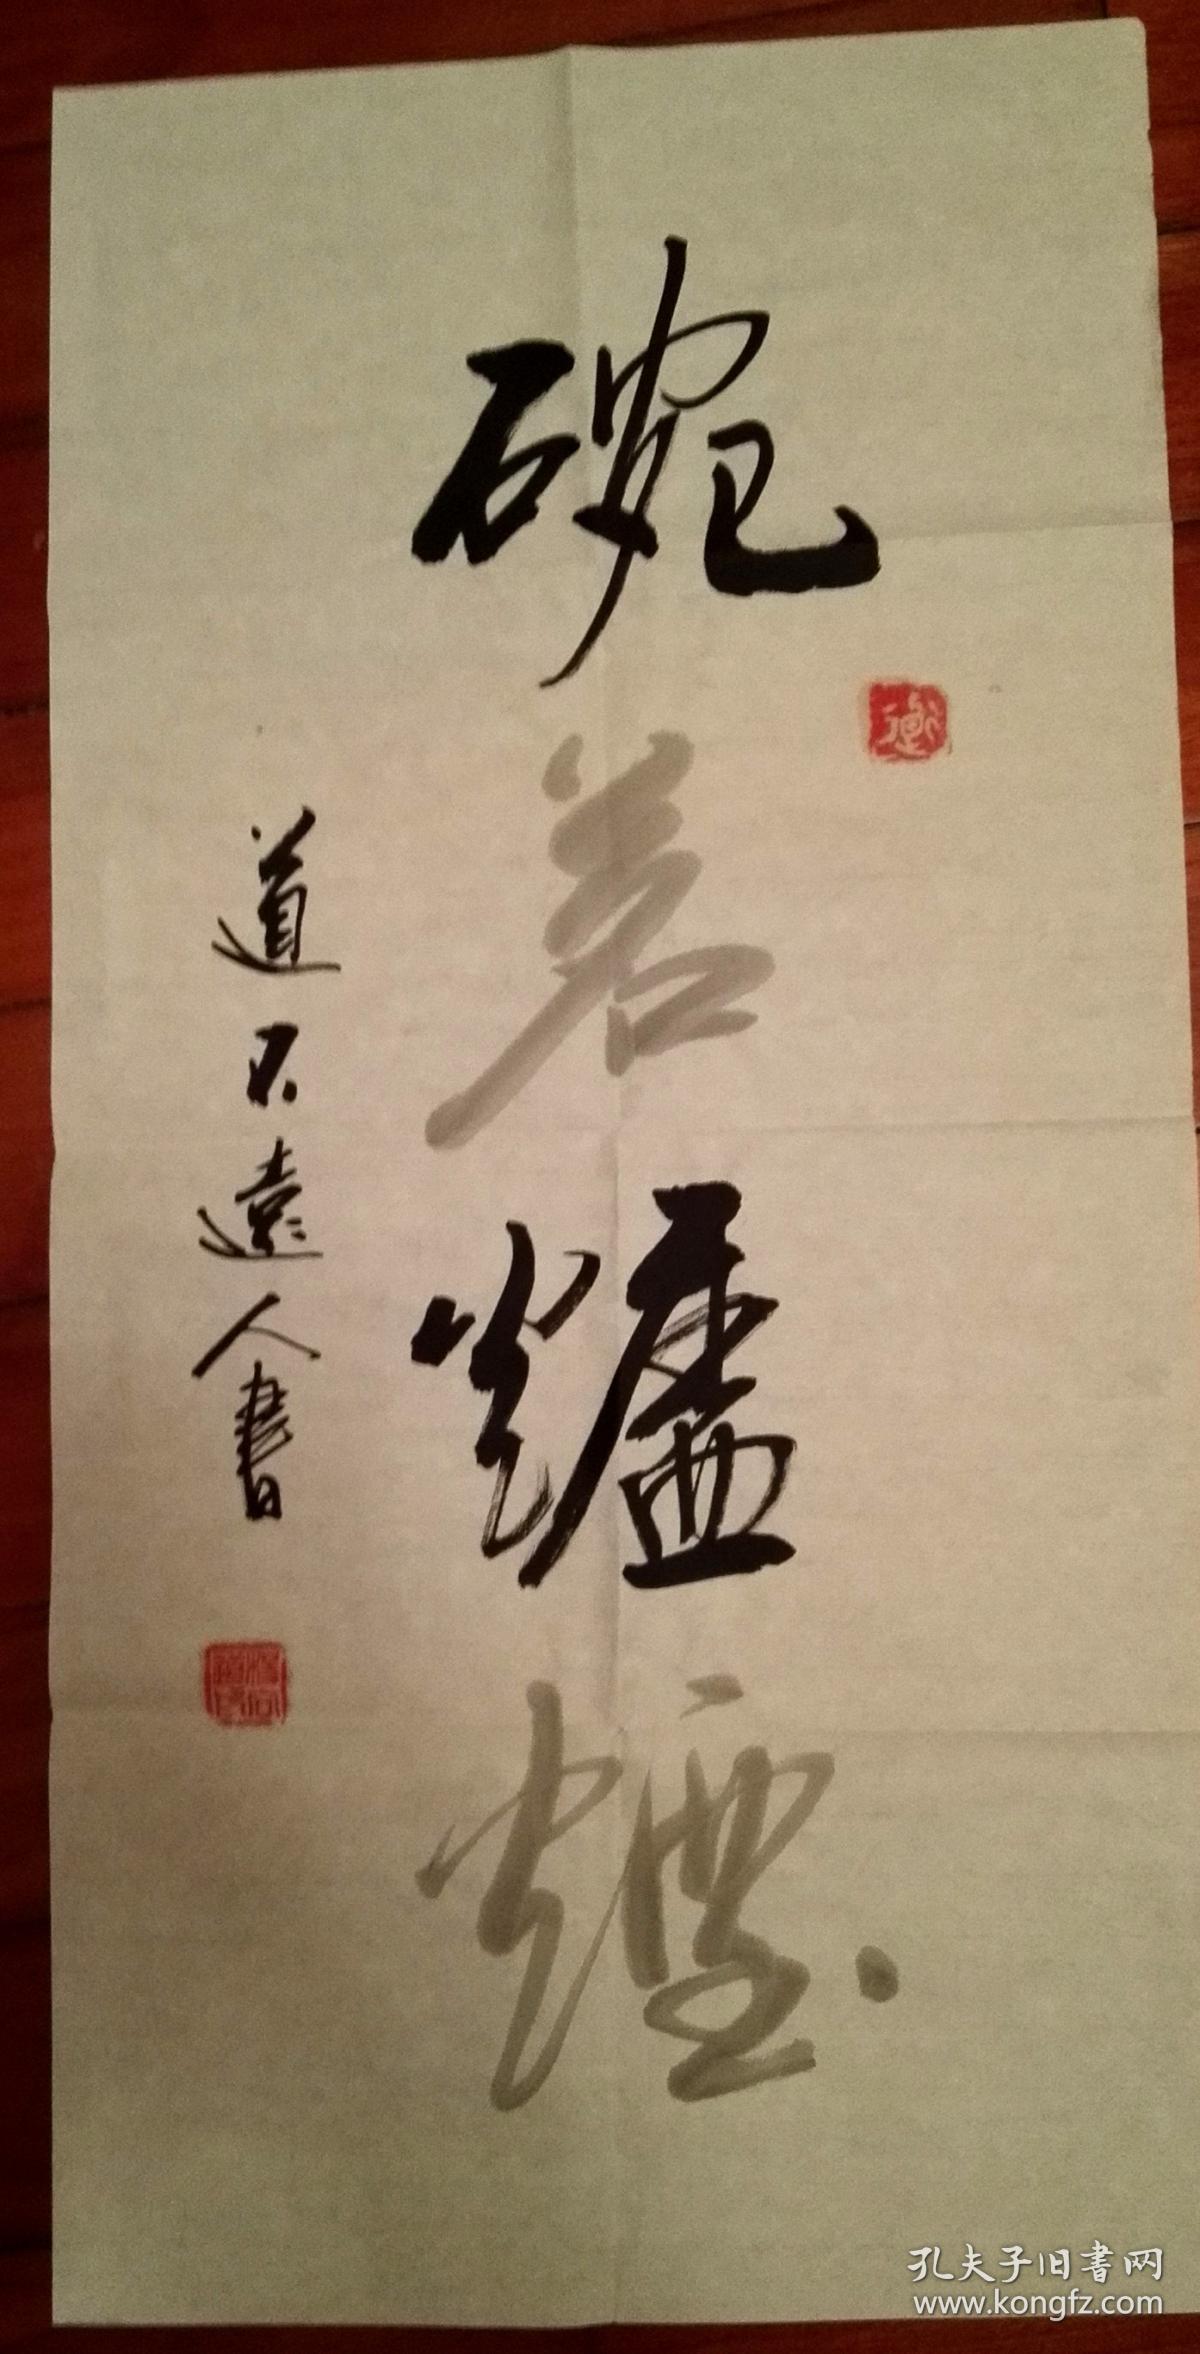 碗茗爐煙
道不遠人書
孔夫子旧書网
www.kongfz.com